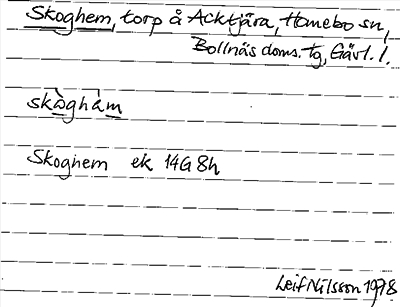 Skoghem, torp å Acktjära, Homebo sn,
Bollnäs doms. tg, Gävl. l.
skòghàm
Skoghem ek 14G 8h
Leif Nilsson 1978